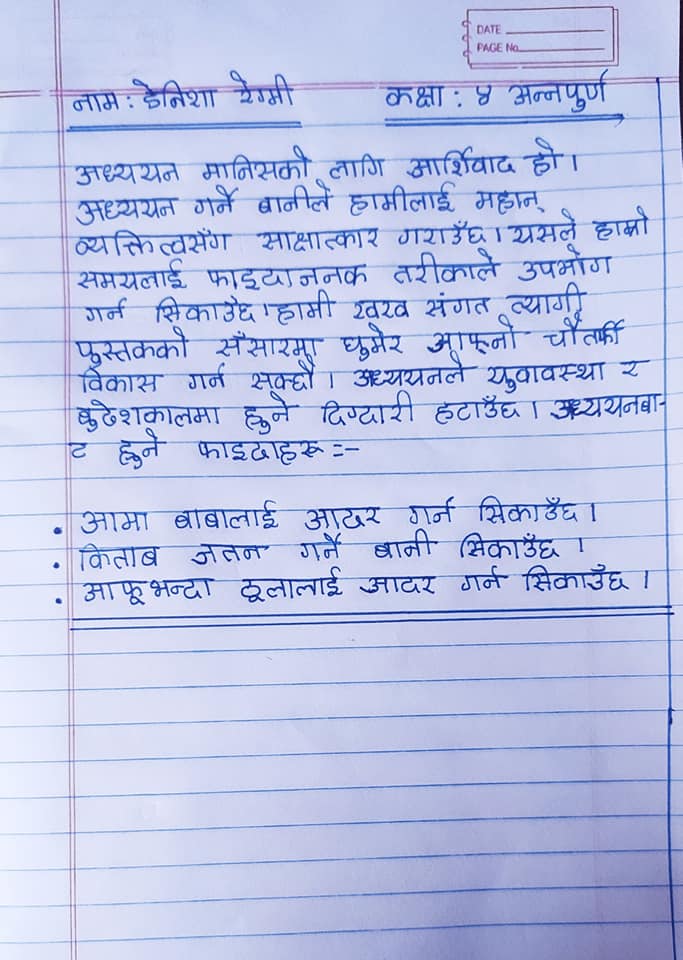 DATE
PAGE No.
नाम : डेनिशा रेग्मी कक्षा : ४ अन्नपुर्ण
अध्ययन मानिसको लागि आर्शिवाद हो ।
अध्ययन गर्ने बानीले हामीलाई महान्
व्यक्तित्वसँग साक्षात्कार गराउँछ । यसले हाम्रो
समयलाई फाइदाजनक तरीकाले उपभोग
गर्न सिकाउँछ । हामी खरब संगत त्यागी
पुस्तकको सँसारमा घुमेर आफ्नो चौतर्फी
विकास गर्न सक्छौं । अध्ययनले युवावस्था र
बुढेशकालमा हुने दिग्दारी हटाउँछ । अध्ययनबा-
ट हुने फाइदाहरू :-
• आमा बाबालाई आदर गर्न सिकाउँछ ।
• किताब जतन गर्ने बानी सिकाउँछ ।
• आफूभन्दा ठूलालाई आदर गर्न सिकाउँछ ।